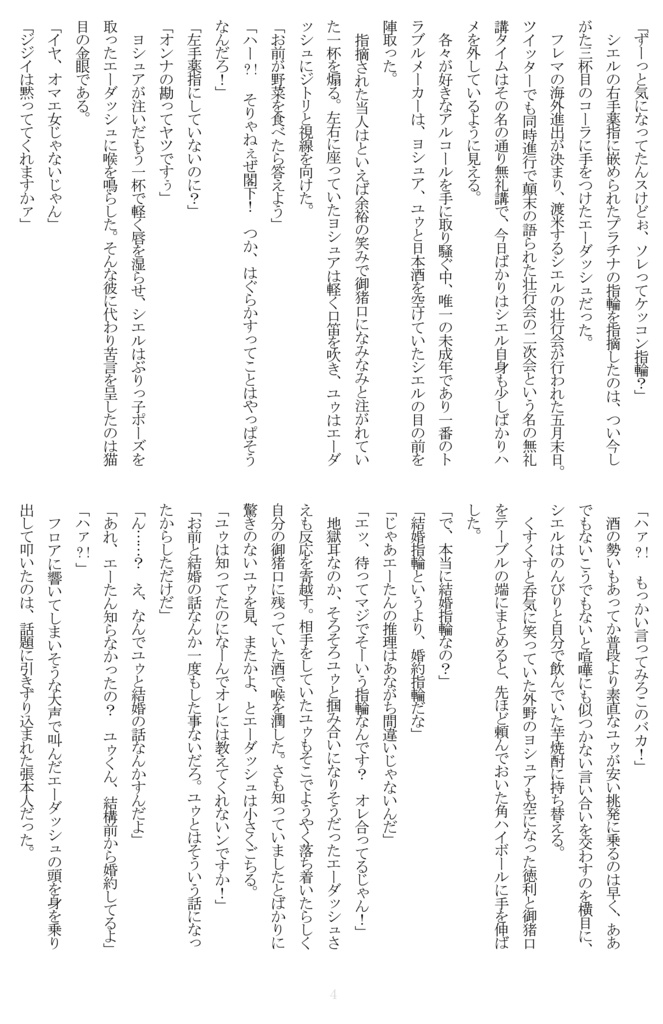 「ずーっと気になってたんスけどぉ、ソレってケッコン指輪？」
　シエルの右手薬指に嵌められたプラチナの指輪を指摘したのは、つい今し
がた三杯目のコーラに手をつけたエーダッシュだった。
　フレマの海外進出が決まり、渡米するシエルの壮行会が行われた五月末日。
ツイッターでも同時進行で顛末の語られた壮行会の二次会という名の無礼
講タイムはその名の通り無礼講で、今日ばかりはシエル自身も少しばかりハ
メを外しているように見える。
　各々が好きなアルコールを手に取り騒ぐ中、唯一の未成年であり一番のト
ラブルメーカーは、ヨシュア、ユゥと日本酒を空けていたシエルの目の前を
陣取った。
　指摘された当人はといえば余裕の笑みで御猪口になみなみと注がれてい
た一杯を煽る。左右に座っていたヨシュアは軽く口笛を吹き、ユゥはエーダ
ッシュにジトリと視線を向けた。
「お前が野菜を食べたら答えよう」
「ハー？！　そりゃねぇぜ閣下！　つか、はぐらかすってことはやっぱそう
なんだろ！」
「左手薬指にしていないのに？」
「オンナの勘ってヤツですぅ」
　ヨシュアが注いだもう一杯で軽く唇を湿らせ、シエルはぶりっ子ポーズを
取ったエーダッシュに喉を鳴らした。そんな彼に代わり苦言を呈したのは猫
目の金眼である。
「イヤ、オマエ女じゃないじゃん」
「ジジイは黙っててくれますかァ」
「ハァ？！　もっかい言ってみろこのバカ！」
　酒の勢いもあってか普段より素直なユゥが安い挑発に乗るのは早く、ああ
でもないこうでもないと喧嘩にも似つかない言い合いを交わすのを横目に、
シエルはのんびりと自分で飲んでいた芋焼酎に持ち替える。
　くすくすと呑気に笑っていた外野のヨシュアも空になった徳利と御猪口
をテーブルの端にまとめると、先ほど頼んでおいた角ハイボールに手を伸ば
した。
「で、本当に結婚指輪なの？」
「結婚指輪というより、婚約指輪だな」
「じゃあエーたんの推理はあながち間違いじゃないんだ」
「エッ、待ってマジでそーいう指輪なんです？　オレ合ってるじゃん！」
　地獄耳なのか、そろそろユゥと掴み合いになりそうだったエーダッシュさ
えも反応を寄越す。相手をしていたユゥもそこでようやく落ち着いたらしく
自分の御猪口に残っていた酒で喉を潤した。さも知っていましたとばかりに
驚きのないユゥを見、またかよ、とエーダッシュは小さくごちる。
「ユゥは知ってたのになーんでオレには教えてくれないンですか！」
「お前と結婚の話なんか一度もした事ないだろ。ユゥとはそういう話になっ
たからしただけだ」
「ん……？　え、なんでユゥと結婚の話なんかすんだよ」
「あれ、エーたん知らなかったの？　ユゥくん、結構前から婚約してるよ」
「ハァ？！」
　フロアに響いてしまいそうな大声で叫んだエーダッシュの頭を身を乗り
出して叩いたのは、話題に引きずり込まれた張本人だった。
4